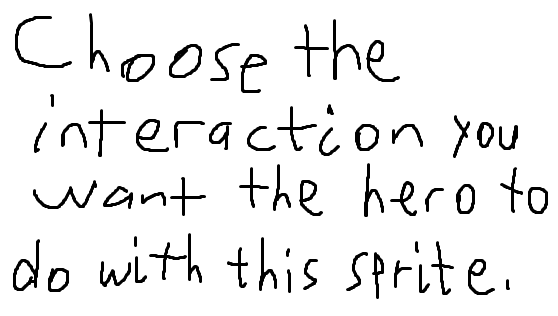 Choose the
interaction you
want the hero to
do with this sprite.